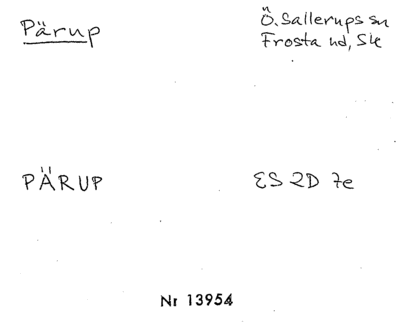 Pärup
Ö. Sallerups sn
Frosta hd, Sk
PÄRUP
ES 2D 7e
Nr 13954